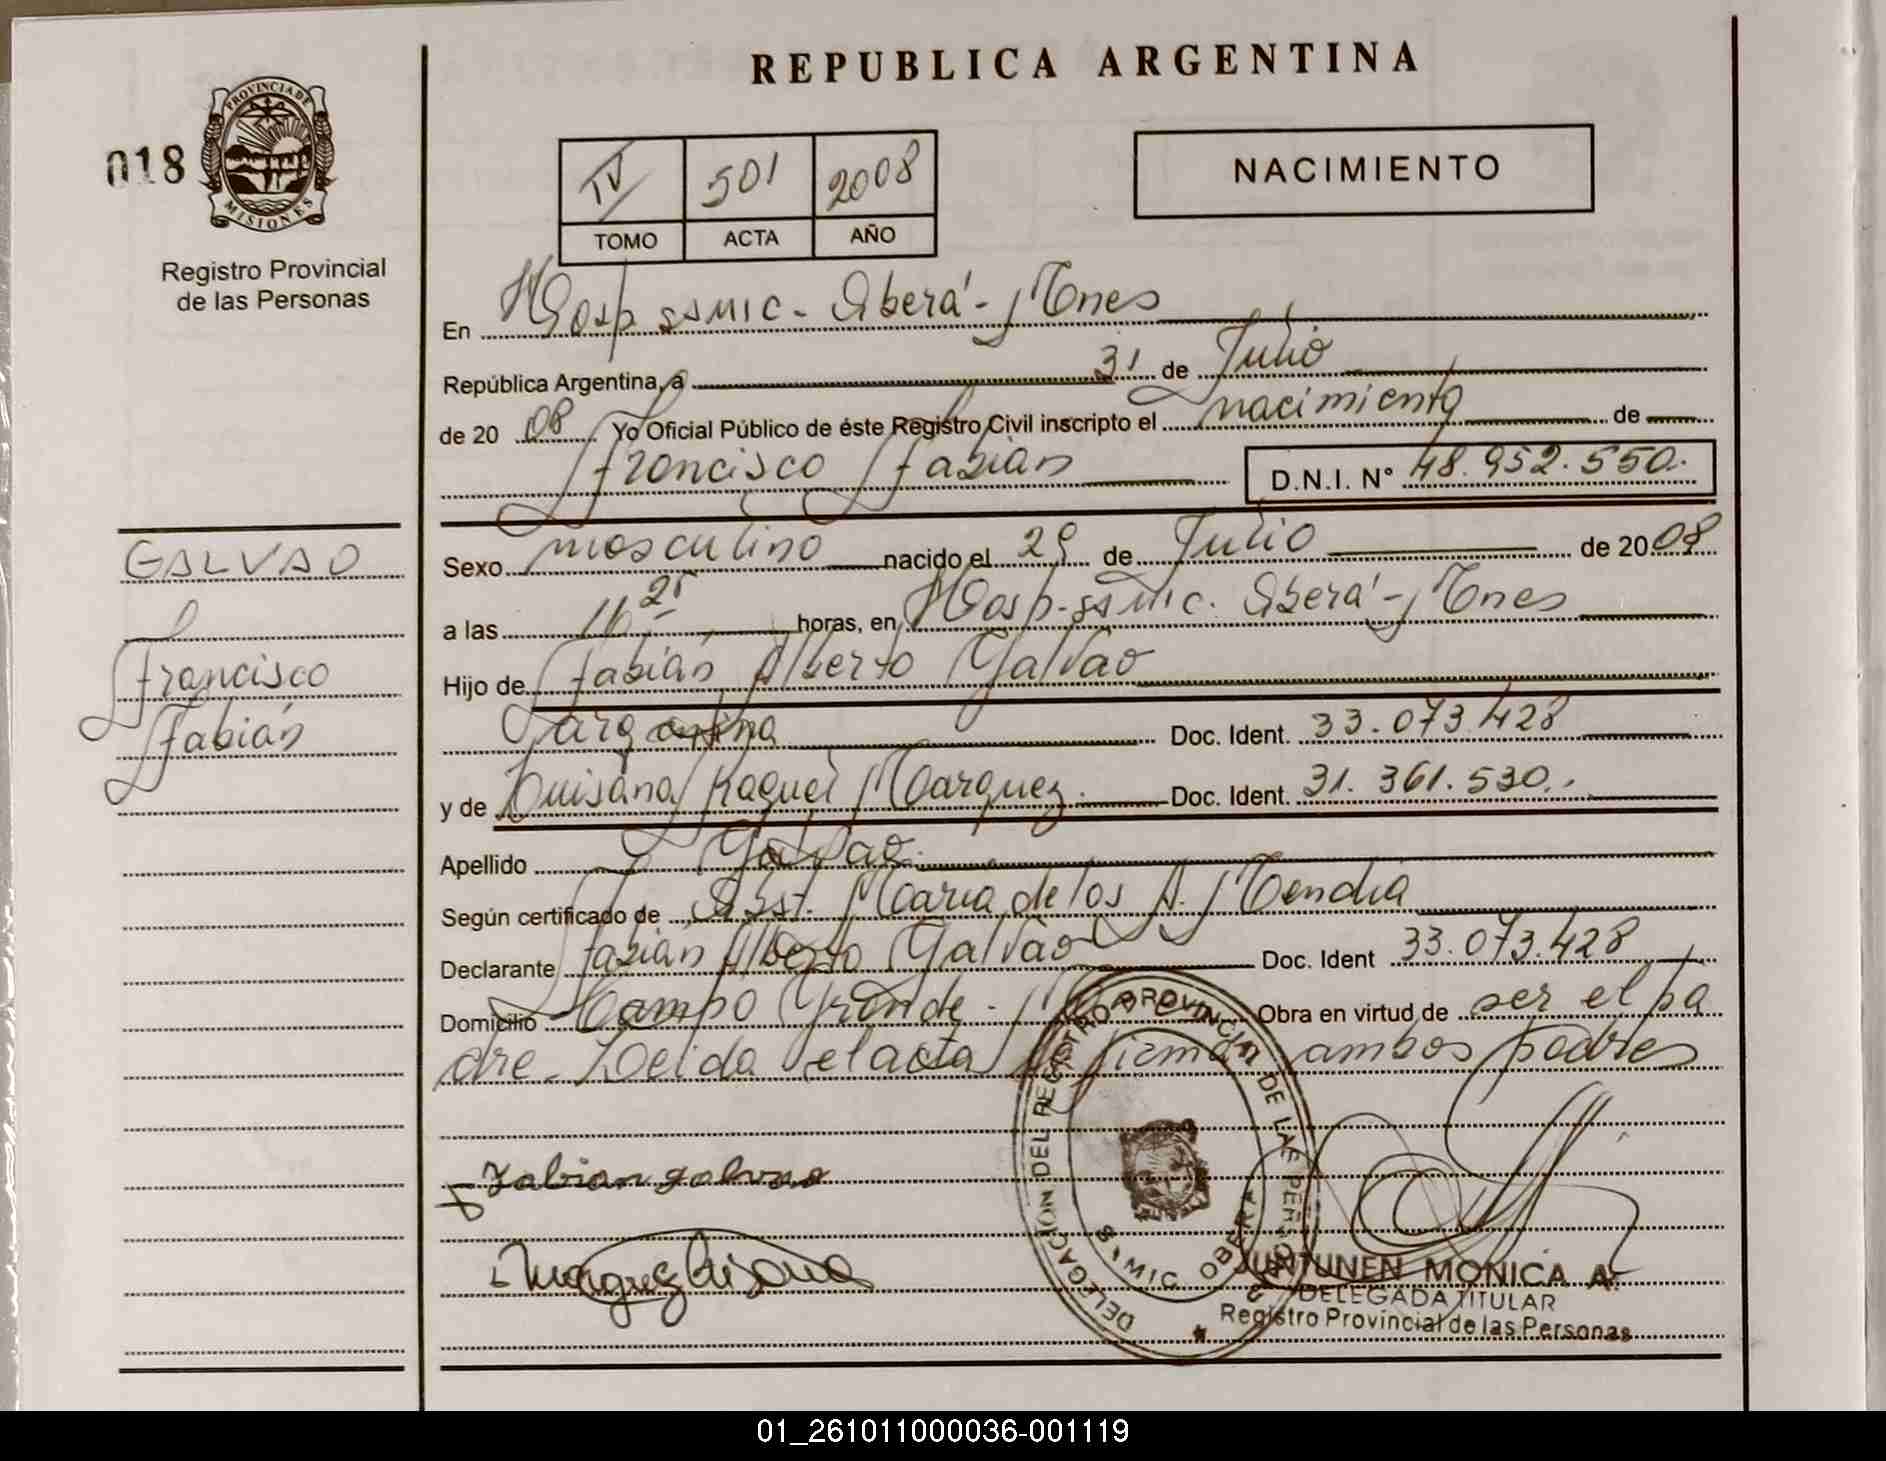 REPUBLICA ARGENTINA
018
PROVINCIA DE
MISIONES
Registro Provincial
de las Personas
IV 501 2008
TOMO ACTA AÑO
NACIMIENTO
En Hosp. SAMIC - Oberá - Mnes
República Argentina, a 31 de Julio
de 2008 Yo Oficial Público de éste Registro Civil inscripto el nacimiento de
Francisco Fabián D.N.I. N° 48.952.550.
GALVAO
Francisco
Fabián
Sexo masculino nacido el 29 de Julio de 2008
a las 16 25 horas, en Hosp. SAMIC. Oberá - Mnes
Hijo de Fabián Alberto Galvao
argentina Doc. Ident. 33.073.428
y de Luisana Raquel Marquez. Doc. Ident. 31.361.530.
Apellido Galvao.
Según certificado de Obst. María de los A. Mendia
Declarante Fabián Alberto Galvao Doc. Ident 33.073.428
Domicilio Campo Grande - Obra en virtud de ser el pa
dre - Leida el acta firman ambos padres
Fabian galvao
Marquez Luisana
DELEGACIÓN DEL REGISTRO PROVINCIAL DE LAS PERSONAS
SAMIC OBERA
JUNTUNEN MONICA A.
DELEGADA TITULAR
Registro Provincial de las Personas
01_261011000036-001119